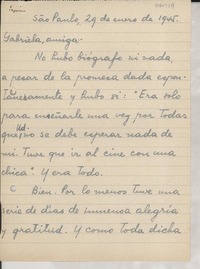 São Paulo, 29 de enero de 1945.
Gabriela, amiga:
No hubo biógrafo ni nada,
a pesar de la promesa dada espon-
táneamente y hubo sí: "Era solo
para enseñarle una vez por todas
que Ud. no se debe esperar nada de
mí. Tuve que ir al cine con una
chica". Y era todo.
Bien. Por lo menos tuve una
serie de días de inmensa alegría
y gratitud. Y como toda dicha